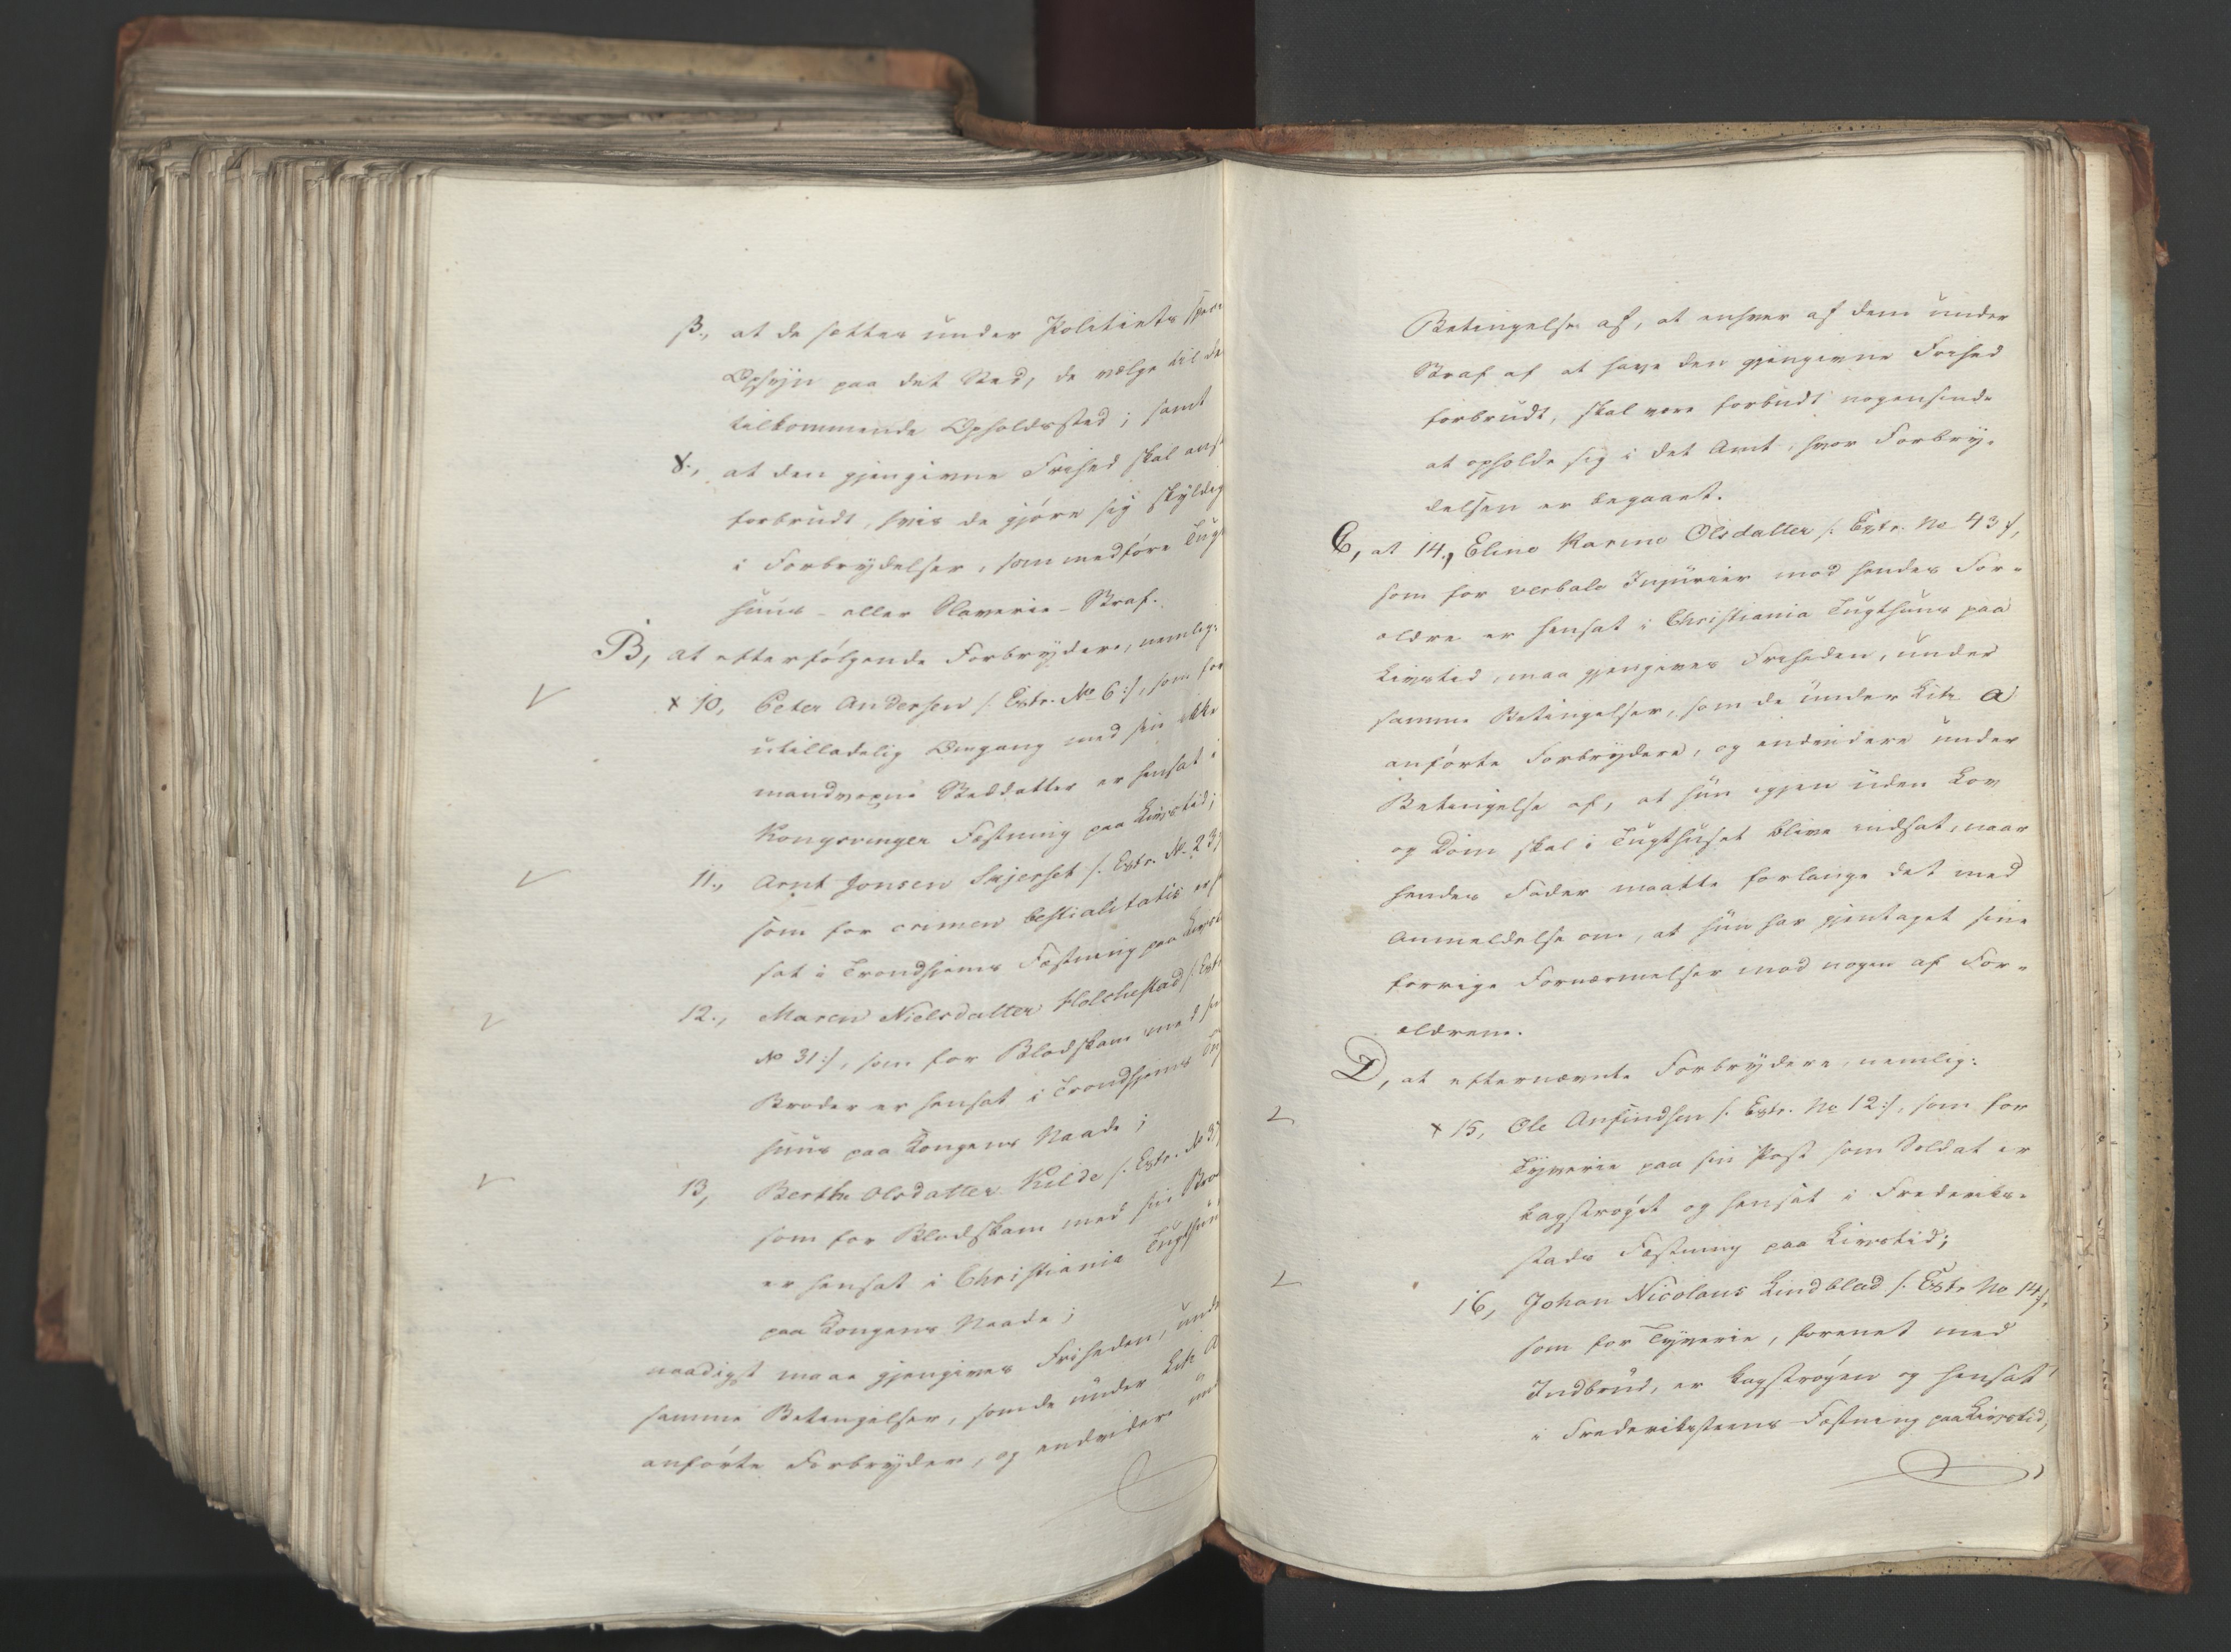 β., at de sættes under Politiets spec
Opsyn paa det Sted, de vælge til de
tilkommende Opholdssted; samt
γ., at den gjengivne Frihed skal ans
forbrudt, hvis de gjøre sig skyldig
i Forbrydelser, som medføre Tugt
huus- eller Slaverie-Straf.
B, at efterfølgende Forbrydere, nemlig:
x 10, Peter Andersen /: Extr. No 6 :/, som for
utilladelig Omgang med sin ikke
mandvoxne Steddatter er hensat i
Kongsvinger Fæstning paa Livstid;
11., Arnt Jonsen Skjerset /: Extr. No 23 :/
som for crimen bestialitatis er h
sat i Trondhjems Fæstning paa Livst
12., Maren Nielsdatter Holchestad /: Extr
No 31 :/, som for Blodskam med sin
Broder er hensat i Trondhjems Tugt
huus paa Kongens Naade;
13, Berthe Olsdatter Kilde /: Extr. No 3
som for Blodskam med sin Bro
er hensat i Christiania Tugthuus
paa Kongens Naade;
naadigst maae gjengives Friheden, unde
samme Betingelser, som de under Litr A
anførte Forbrydere, og endvidere und
Betingelse af, at enhver af dem under
Straf af at have den gjengivne Frihed
forbrudt, skal være forbudt nogensinde
at opholde sig i det Amt, hvor Forbry-
delsen er begaaet.
C, at 14., Eline Karine Olsdatter /: Extr. No 43 :/,
som for verbale Injurier mod hendes For-
ældre er hensat i Christiania Tugthuus paa
Livstid, maa gjengives Friheden, under
samme Betingelser, som de under Litr. A
anførte Forbrydere, og endvidere under
Betingelse af, at hun igjen uden Lov
og Dom skal i Tugthuset blive indsat, naar
hendes Fader maatte forlange det med
Anmeldelse om, at hun har gjentaget sine
forrige Fornærmelser mod nogen af For-
ældrene.
D, at efternævnte Forbrydere, nemlig:
x 15, Ole Anfindsen /: Extr. No 12 :/, som for
Tyverie paa sin Post som Soldat er
kagstrøget og hensat i Frederiks-
stads Fæstning paa Livstid;
16, Johan Nicolaus Lindblad /: Extr No 14 :/,
som for Tyverie, forenet med
Indbrud, er kagstrøgen og hensat
i Frederiksteens Fæstning paa Livstid,